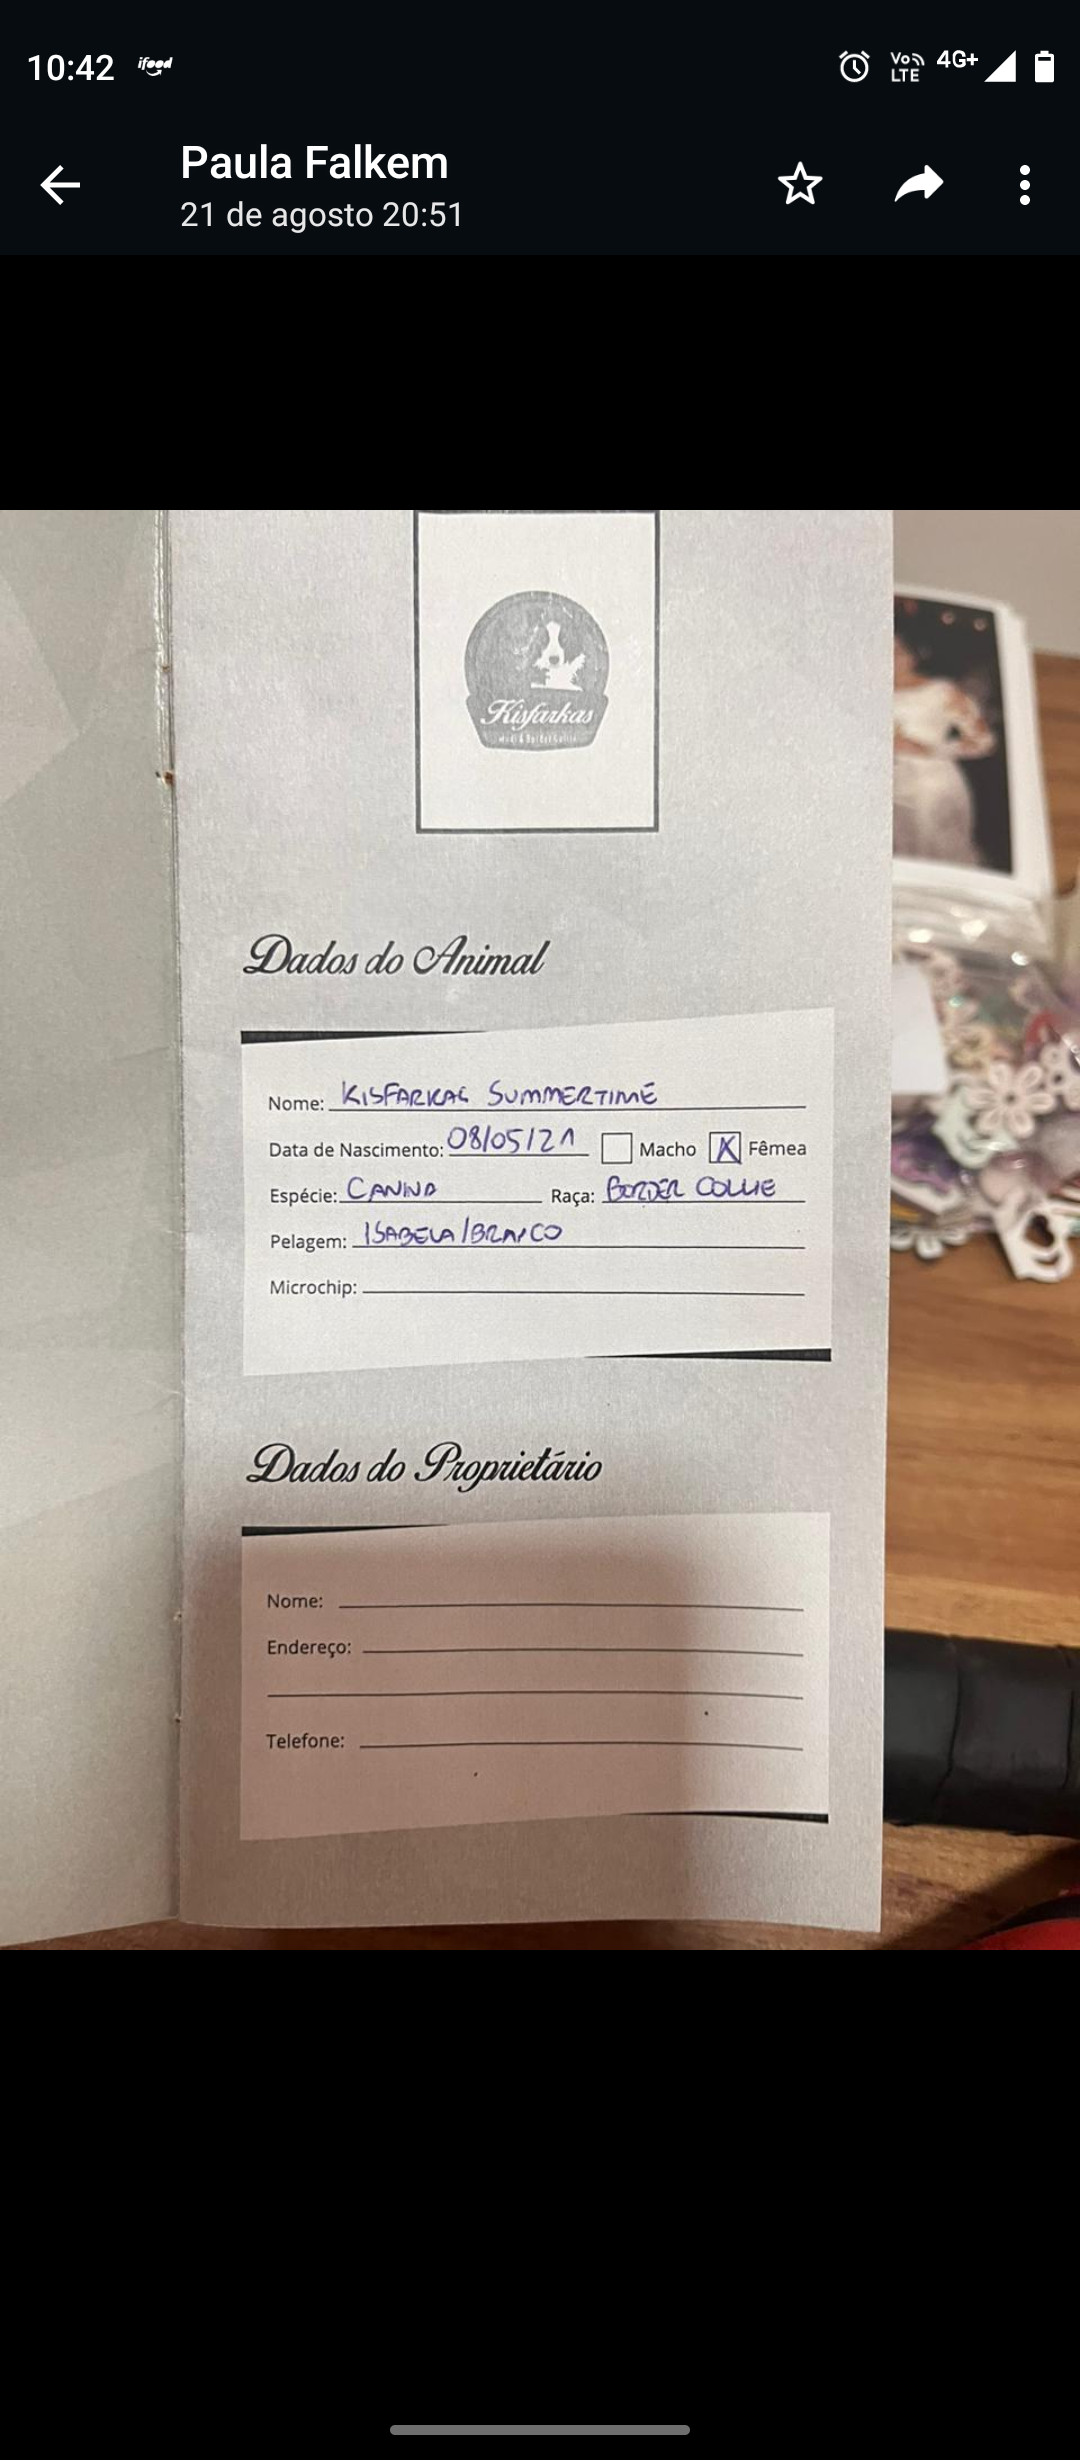 10:42 ifood VoLTE 4G+
Paula Falkem
21 de agosto 20:51
Kisfarkas
Dados do Animal
Nome: KISFARKAS SUMMERTIME
Data de Nascimento: 08/05/21 Macho X Fêmea
Espécie: CANINA Raça: BORDER COLLIE
Pelagem: ISABELA/BRANCO
Microchip:
Dados do Proprietário
Nome:
Endereço:
Telefone: